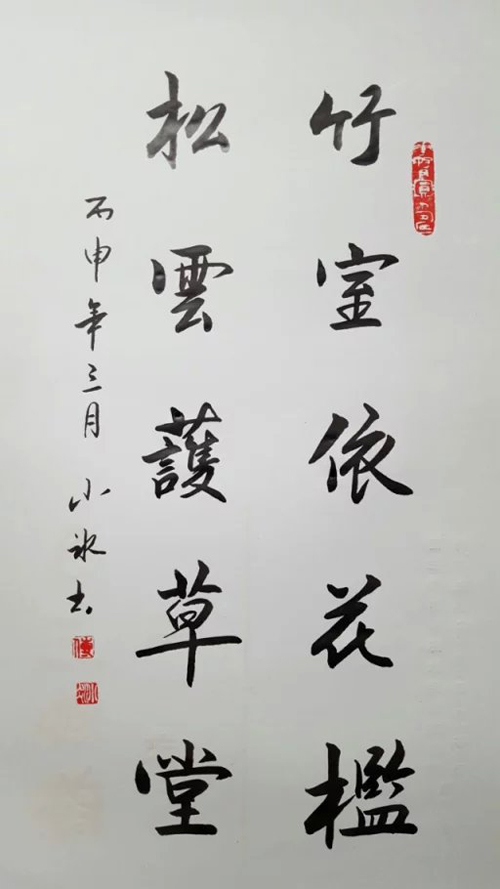 竹室依花檻
松雲護草堂
丙申年三月 小冰书